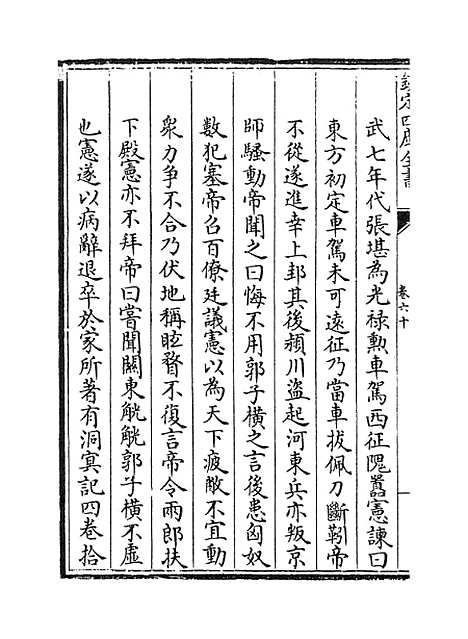 欽定四庫全書
卷六十
武七年代張堪為光禄勲車駕西征隗囂憲諫曰
東方初定車駕未可遠征乃當車拔佩刀斷靷帝
不從遂進幸上邽其後潁川盜起河東兵亦叛京
師騷動帝聞之曰悔不用郭子横之言後患匈奴
數犯塞帝召百僚廷議憲以為天下疲敝不宜動
衆力争不合乃伏地稱眩瞀不復言帝令兩郎扶
下殿憲亦不拜帝曰嘗聞關東觥觥郭子横不虚
也憲遂以病辭退卒於家所著有洞冥記四卷拾